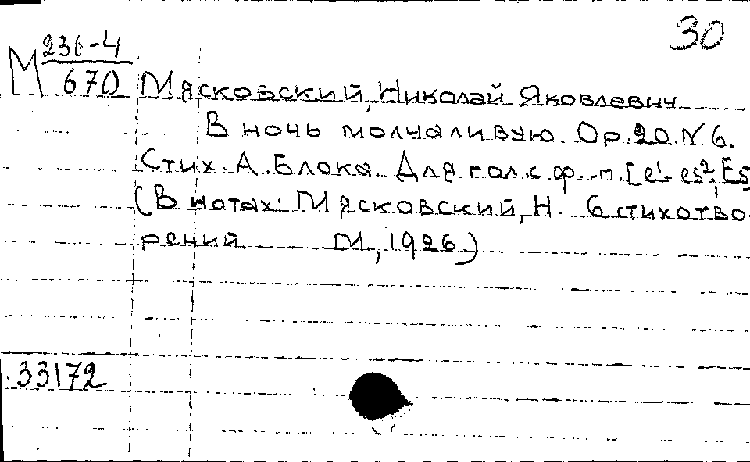 30
М 236-4
670
Мясковский, Николай Яковлевич
В ночь молчаливую. Op. 20. N 6.
Стих. А. Блока. Для гол. с ф.-п. [e¹-es², Es
(В нотах: Мясковский, Н. 6 стихотво-
рений М., 1926)
33172